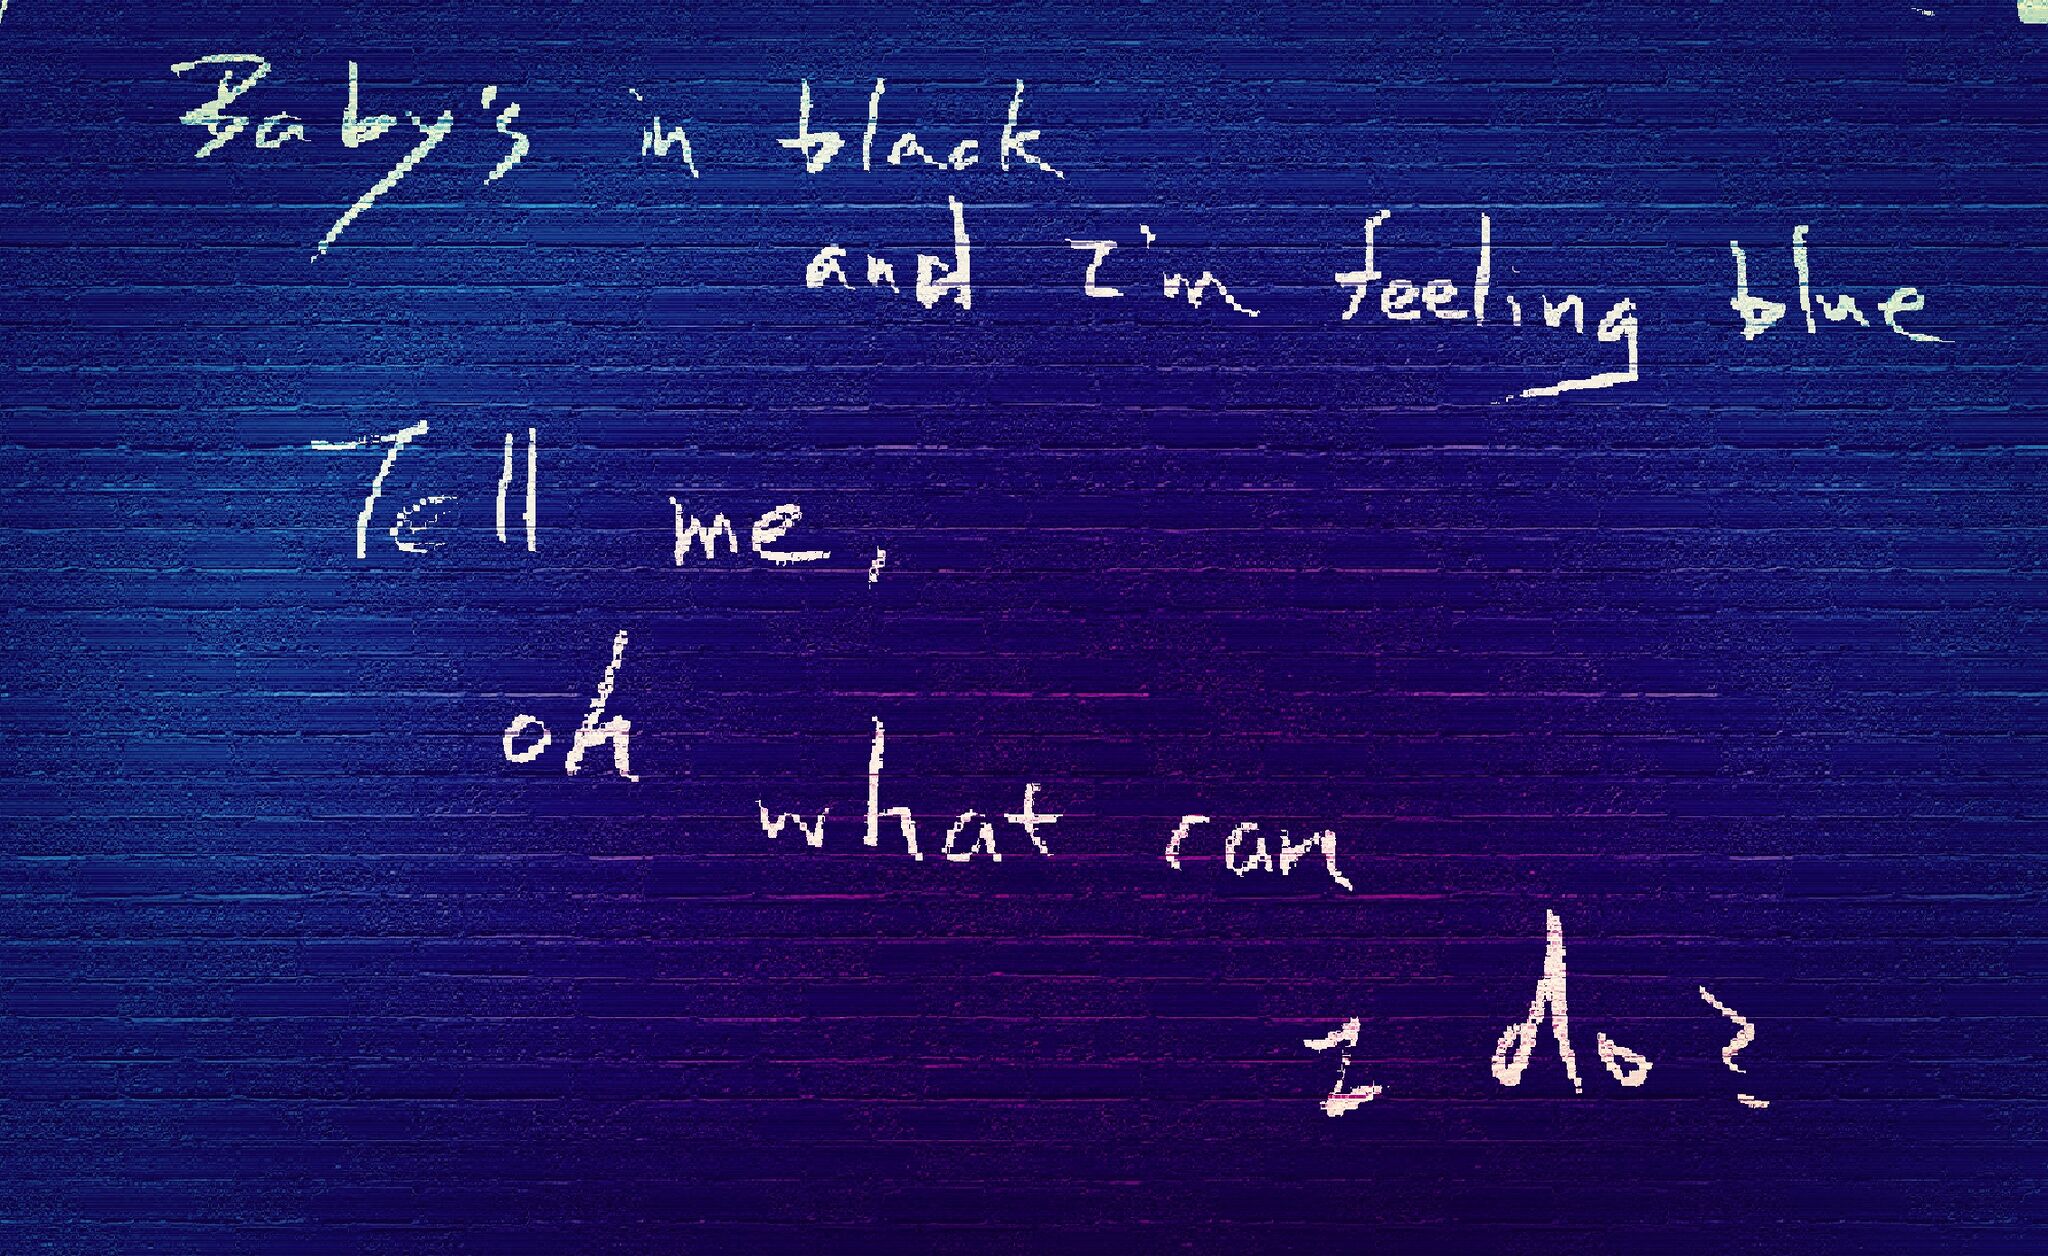 Baby's in black
and I'm feeling blue
Tell me,
oh
what can
I do?